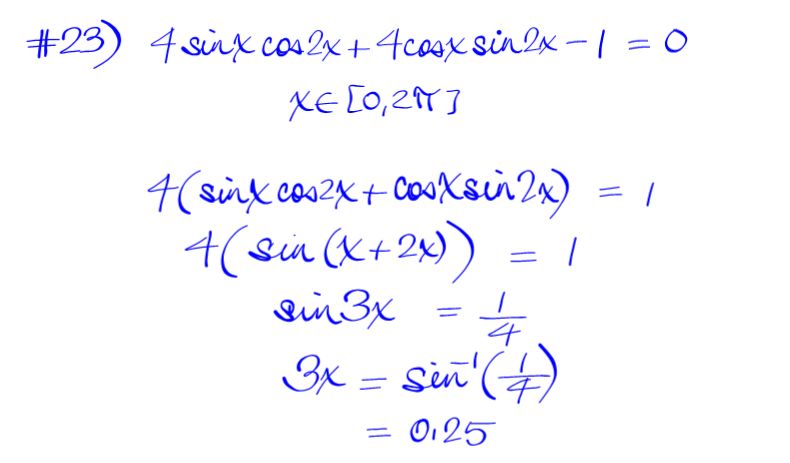 #23) 4 sinx cos2x + 4cosx sin2x - 1 = 0
x ∈ [0, 2π]
4(sinx cos2x + cosx sin2x) = 1
4(sin(x+2x)) = 1
sin3x = 1/4
3x = sin⁻¹(1/4)
= 0.25